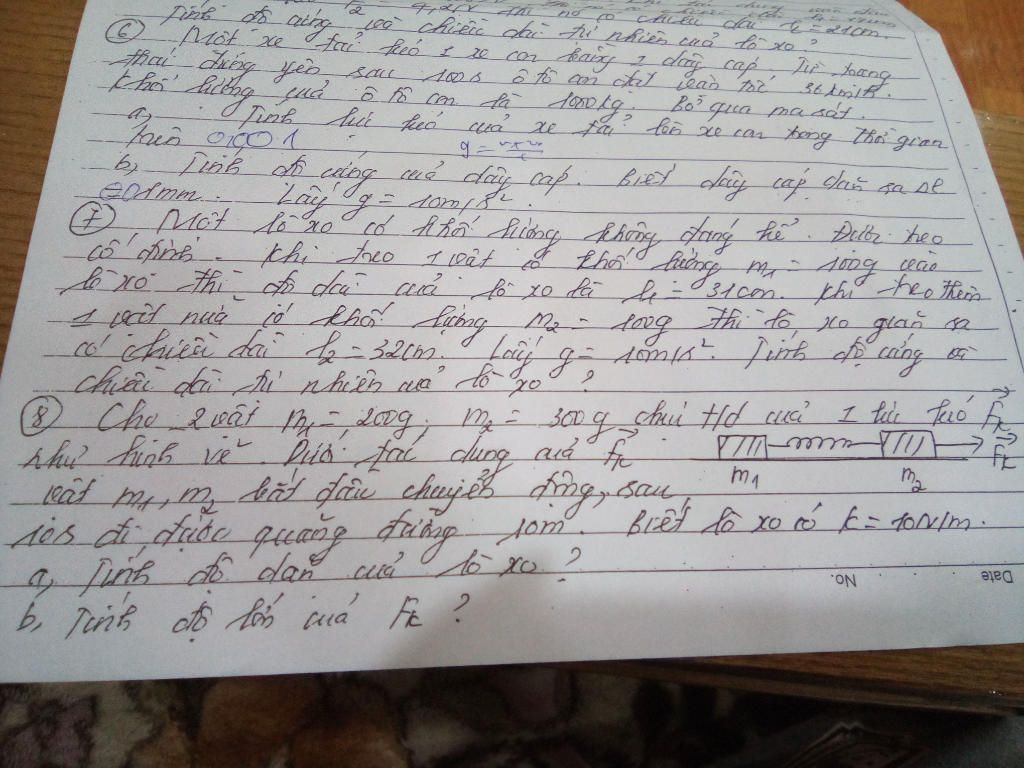 Tính độ cứng và chiều dài tự nhiên của lò xo?
⑥ Một xe tải kéo 1 xe con bằng 1 dây cáp. Từ trạng
thái đứng yên sau 100s ô tô con đạt vận tốc 36km/h.
Khối lượng của ô tô con là 1000kg. Bỏ qua ma sát.
a, Tính lực kéo của xe tải lên xe con trong thời gian
trên
b, Tính độ cứng của dây cáp. Biết dây cáp dãn ra
mm. Lấy g = 10m/s²
⑦ Một lò xo có khối lượng không đáng kể. Được treo
cố định. Khi treo 1 vật có khối lượng m1 = 100g vào
lò xo thì độ dài của lò xo là l1 = 31cm. Khi treo thêm
1 vật nữa có khối lượng m2 = 100g thì lò xo giãn ra
có chiều dài l2 = 32cm. Lấy g = 10m/s². Tính độ cứng và
chiều dài tự nhiên của lò xo?
⑧ Cho 2 vật m1 = 200g; m2 = 300g chịu t/d của 1 lực kéo Fk
như hình vẽ. Dưới tác dụng của Fk Fk
m1 m2
vật m1, m2 bắt đầu chuyển động, sau
10s đi được quãng đường 10m. Biết lò xo có k = 10N/m.
a, Tính độ dãn của lò xo?
b, Tính độ lớn của Fk?
No.
Date